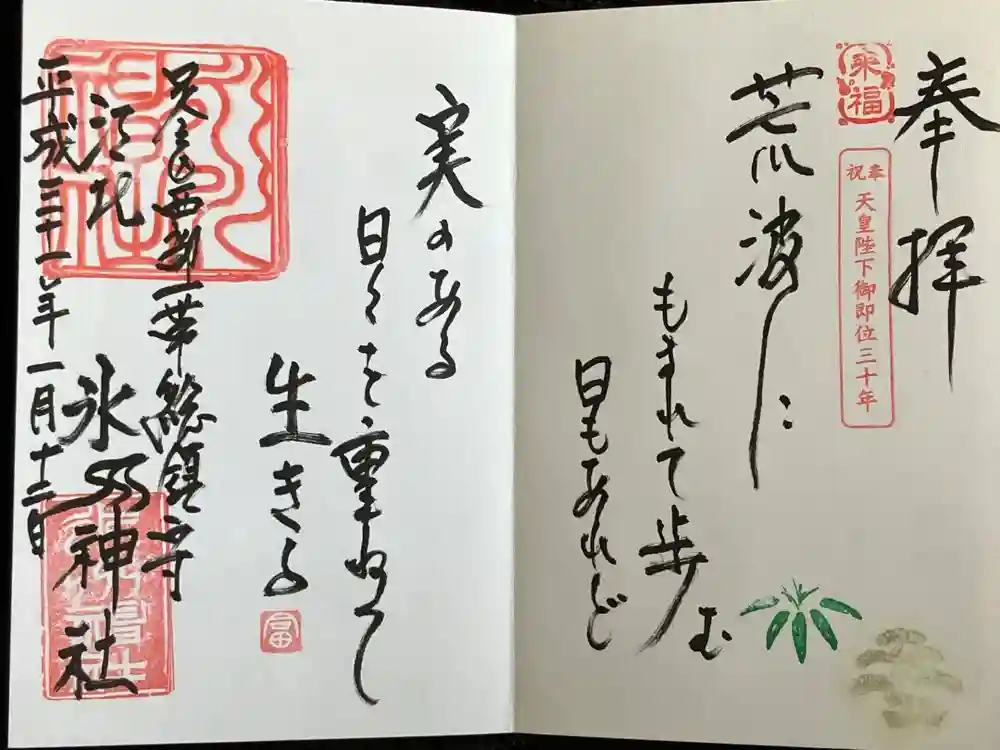 奉拝
来福
奉祝
天皇陛下御即位三十年
荒波に
もまれて歩む
日もあれど
実のある
日々を重ねて
生きる
富
足立区西部一帯総鎮守
江北
氷川神社
平成三十一年一月十三日